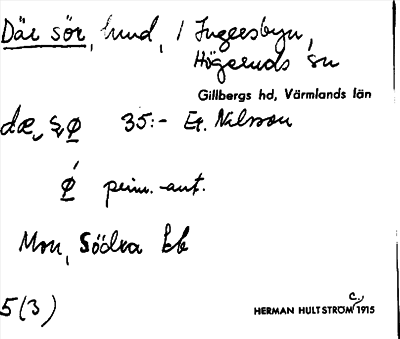 Där sör, hund, / Ingersbyn,
Högeruds sn
Gillbergs hd, Värmlands län
35:- Er. Nilsson
prim. -ant.
Mon, Södra bb
5(3)
HERMAN HULTSTRÖM C., 1915